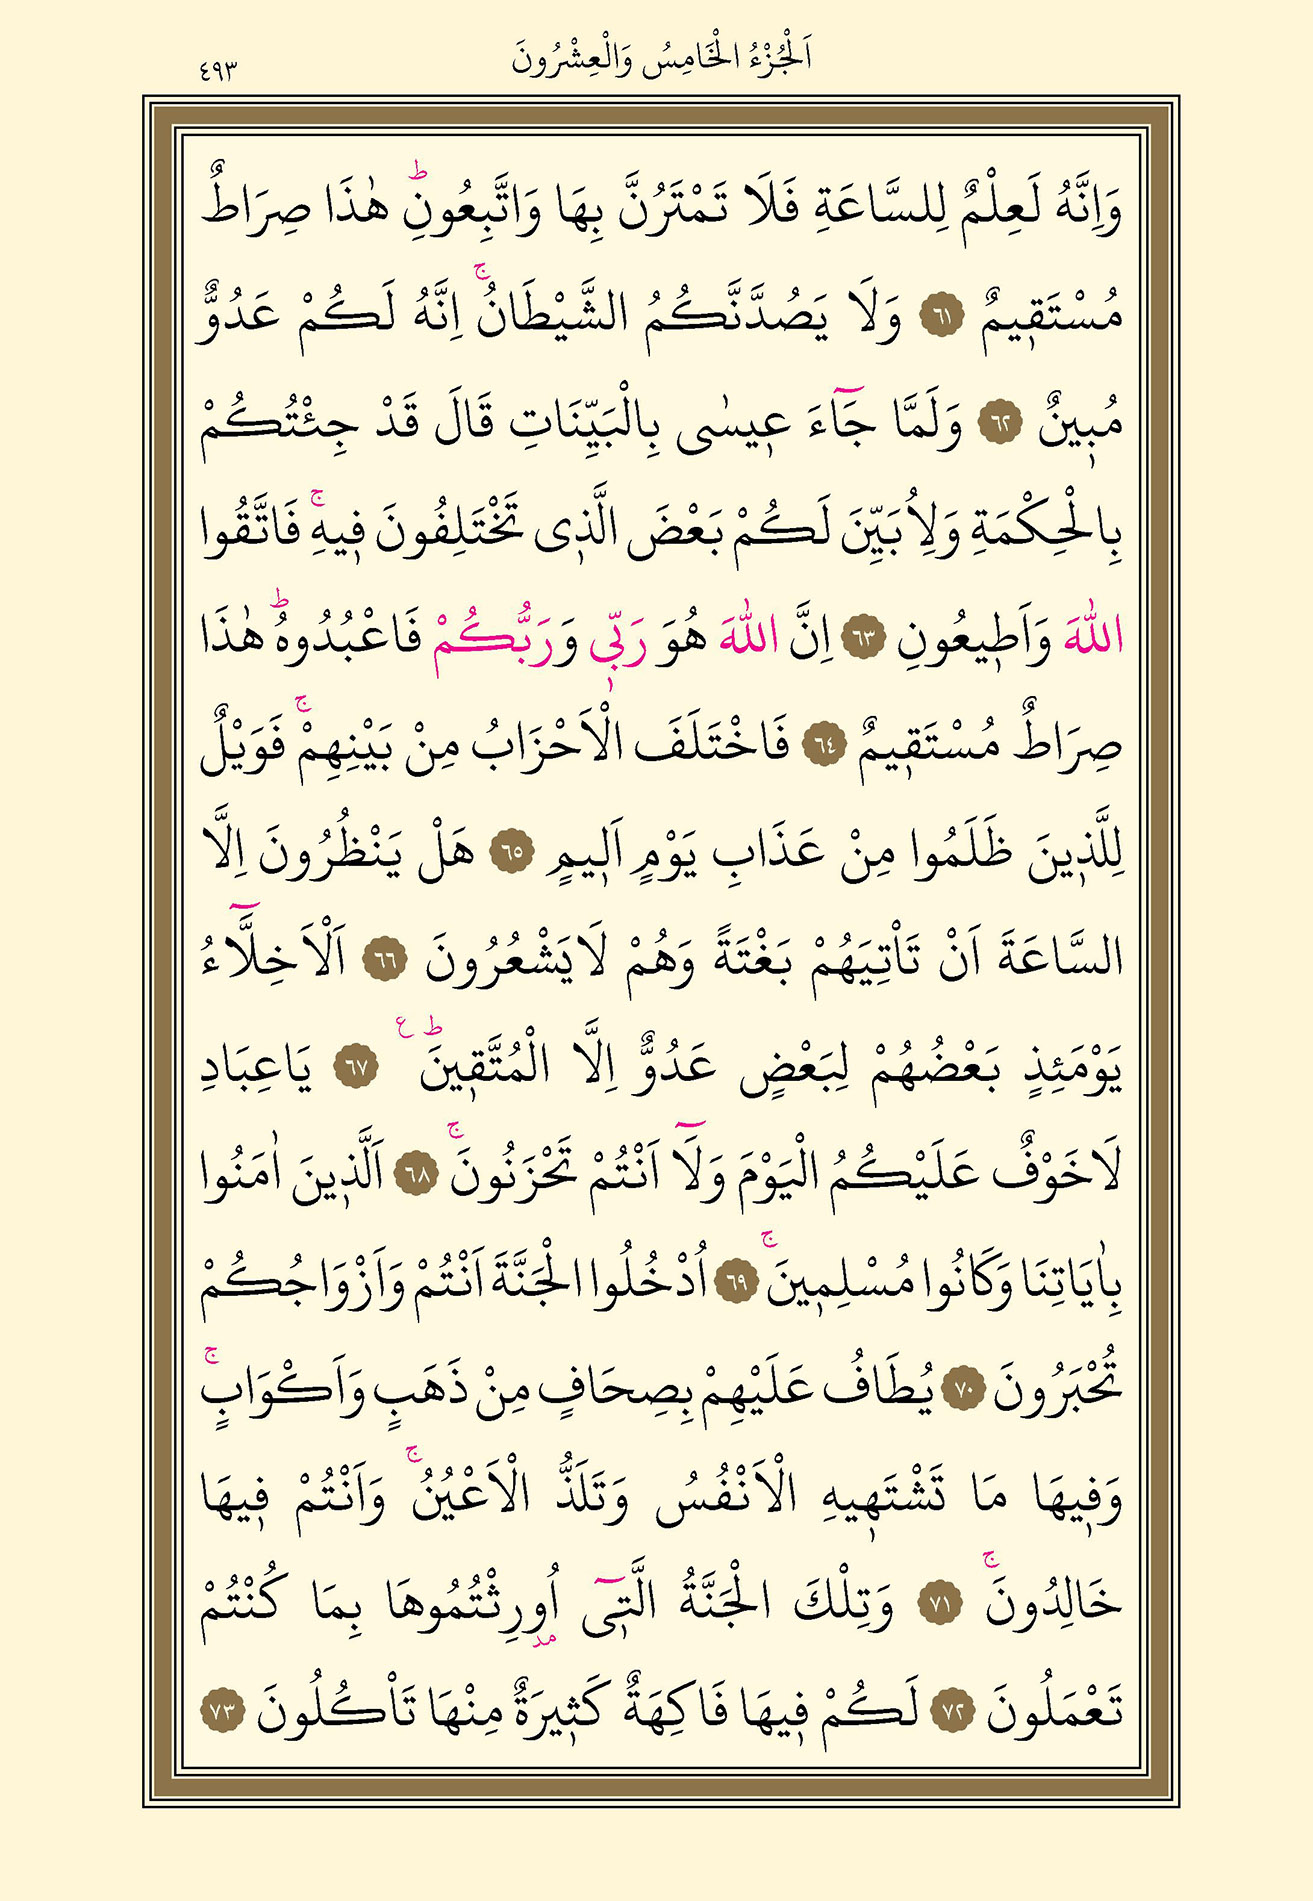 اَلْجُزْءُ الْخَامِسُ وَالْعِشْرُونَ
٤٩٣
وَاِنَّهُ لَعِلْمٌ لِلسَّاعَةِ فَلَا تَمْتَرُنَّ بِهَا وَاتَّبِعُونِۜ هٰذَا صِرَاطٌ
مُسْتَق۪يمٌ ﴿٦١﴾ وَلَا يَصُدَّنَّكُمُ الشَّيْطَانُۚ اِنَّهُ لَكُمْ عَدُوٌّ
مُب۪ينٌ ﴿٦٢﴾ وَلَمَّا جَٓاءَ ع۪يسٰى بِالْبَيِّنَاتِ قَالَ قَدْ جِئْتُكُمْ
بِالْحِكْمَةِ وَلِاُبَيِّنَ لَكُمْ بَعْضَ الَّذ۪ى تَخْتَلِفُونَ ف۪يهِۚ فَاتَّقُوا
اللّٰهَ وَاَط۪يعُونِ ﴿٦٣﴾ اِنَّ اللّٰهَ هُوَ رَبّ۪ى وَرَبُّكُمْ فَاعْبُدُوهُۜ هٰذَا
صِرَاطٌ مُسْتَق۪يمٌ ﴿٦٤﴾ فَاخْتَلَفَ الْاَحْزَابُ مِنْ بَيْنِهِمْۚ فَوَيْلٌ
لِلَّذ۪ينَ ظَلَمُوا مِنْ عَذَابِ يَوْمٍ اَل۪يمٍ ﴿٦٥﴾ هَلْ يَنْظُرُونَ اِلَّا
السَّاعَةَ اَنْ تَأْتِيَهُمْ بَغْتَةً وَهُمْ لَا يَشْعُرُونَ ﴿٦٦﴾ اَلْاَخِلَّٓاءُ
يَوْمَئِذٍ بَعْضُهُمْ لِبَعْضٍ عَدُوٌّ اِلَّا الْمُتَّق۪ينَۜ ع ﴿٦٧﴾ يَاعِبَادِ
لَا خَوْفٌ عَلَيْكُمُ الْيَوْمَ وَلَٓا اَنْتُمْ تَحْزَنُونَۚ ﴿٦٨﴾ اَلَّذ۪ينَ اٰمَنُوا
بِاٰيَاتِنَا وَكَانُوا مُسْلِم۪ينَۚ ﴿٦٩﴾ اُدْخُلُوا الْجَنَّةَ اَنْتُمْ وَاَزْوَاجُكُمْ
تُحْبَرُونَ ﴿٧٠﴾ يُطَافُ عَلَيْهِمْ بِصِحَافٍ مِنْ ذَهَبٍ وَاَكْوَابٍۚ
وَف۪يهَا مَا تَشْتَه۪يهِ الْاَنْفُسُ وَتَلَذُّ الْاَعْيُنُۚ وَاَنْتُمْ ف۪يهَا
خَالِدُونَۚ ﴿٧١﴾ وَتِلْكَ الْجَنَّةُ الَّت۪ٓى اُورِثْتُمُوهَا بِمَا كُنْتُمْ
تَعْمَلُونَ ﴿٧٢﴾ لَكُمْ ف۪يهَا فَاكِهَةٌ كَث۪يرَةٌ مِنْهَا تَأْكُلُونَ ﴿٧٣﴾